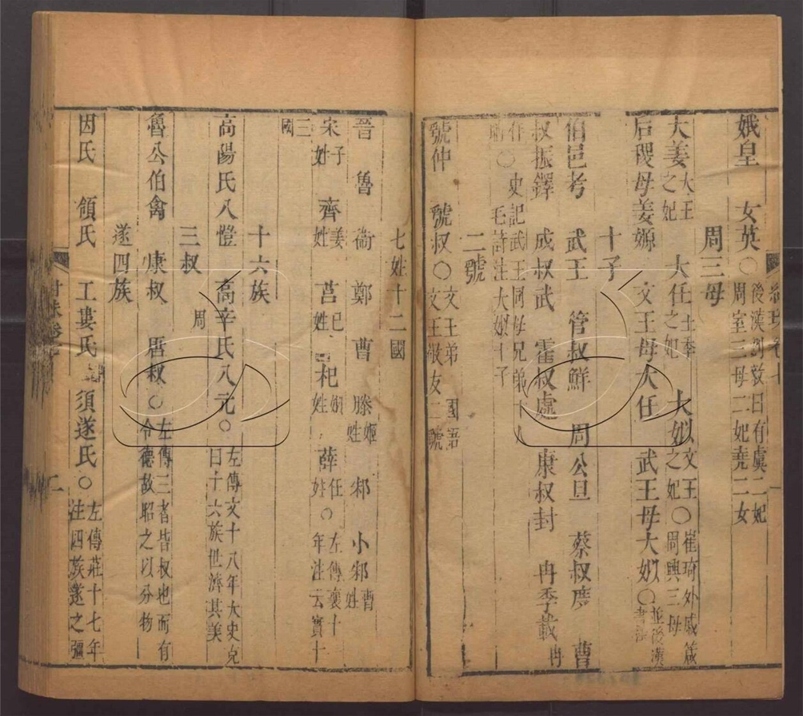 娥皇 女英○後漢劉敎曰有虞二妃周室三母二妃堯二女
周三母
大姜大王之妃 大任王季之妃 大姒文王之妃○崔琦外戚箴周興三母
后稷母姜嫄 文王母大任 武王母大姒○並後漢
十子
伯邑考 武王 管叔鮮 周公旦 蔡叔度 曹
叔振鐸 成叔武 霍叔處 康叔封 冉季載冉
作 ○史記武王同母兄弟十人毛詩注大姒十子
二號
號仲 號叔○文王弟 國語文王敬友二號
七姓十二國
晉 魯 衞 鄭 曹 滕姬姓 邾 小邾曹姓
宋子姓 齊姜姓 莒己姓 杞姒姓 薛任姓○左傳襄十年注云實十
三國
十六族
高陽氏八愷 高辛氏八元○左傳文十八年大史克曰十六族世濟其美
三叔 周
魯公伯禽 康叔 唐叔○左傳三者皆叔也而有令德故昭之以分物
遂四族
因氏 領氏 工婁氏 須遂氏○左傳莊十七年注四族遂之彊